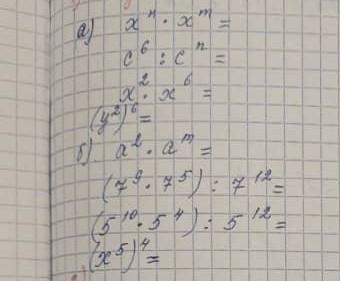 а) xⁿ · xᵐ =
c⁶ : cⁿ =
x² · x⁶ =
(y²)⁶ =
б) a² · aᵐ =
(7⁹ · 7⁵) : 7¹² =
(5¹⁰ · 5⁴) : 5¹² =
(x⁵)⁴ =